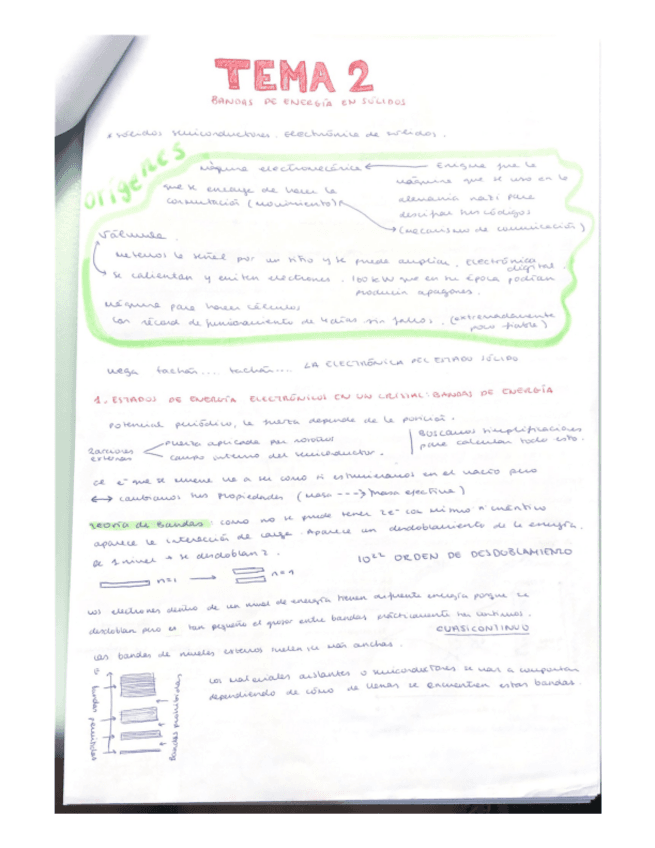 TEMA 2
BANDAS DE ENERGÍA EN SÓLIDOS
sólidos semiconductores. Electrónica de sólidos.
orígenes
máquina electromecánica ← Enigma fue la
que se encarga de hacer la máquina que se usó en la
conmutación (movimiento) alemania nazi para
descifrar sus códigos
(mecanismo de comunicación)
Válvula
metemos la señal por un tubo y se puede ampliar. Electrónica digital.
se calientan y emiten electrones. 160 kW que en su época podían
producir apagones.
máquina para hacer cálculos
con récord de funcionamiento de 4 días sin fallos. (extremadamente
poco fiable)
llega tachán.... tachán.... LA ELECTRÓNICA DEL ESTADO SÓLIDO
1. ESTADOS DE ENERGÍA ELECTRÓNICOS EN UN CRISTAL: BANDAS DE ENERGÍA
potencial periódico, la fuerza depende de la posición.
2 acciones externas
fuerza aplicada por nosotros
campo interno del semiconductor.
Buscamos simplificaciones
para calcular todo esto.
el e⁻ que se mueve va a ser como si estuviéramos en el vacío pero
↔ cambiamos sus propiedades (masa ---> masa efectiva)
teoría de Bandas como no se puede tener 2e⁻ con mismo nº cuántico
aparece la interacción de carga. Aparece un desdoblamiento de la energía.
de 1 nivel → se desdoblan 2.
10²² ORDEN DE DESDOBLAMIENTO
n=1 → n=1
Los electrones dentro de un nivel de energía tienen diferente energía porque se
desdoblan pero es tan pequeño el grosor entre bandas prácticamente son continuos.
CUASICONTINUO
Las bandas de niveles externos suelen ser más anchas.
Los materiales aislantes o semiconductores se van a comportar
dependiendo de cómo de llenas se encuentren estas bandas.
bandas permitidas
Bandas prohibidas